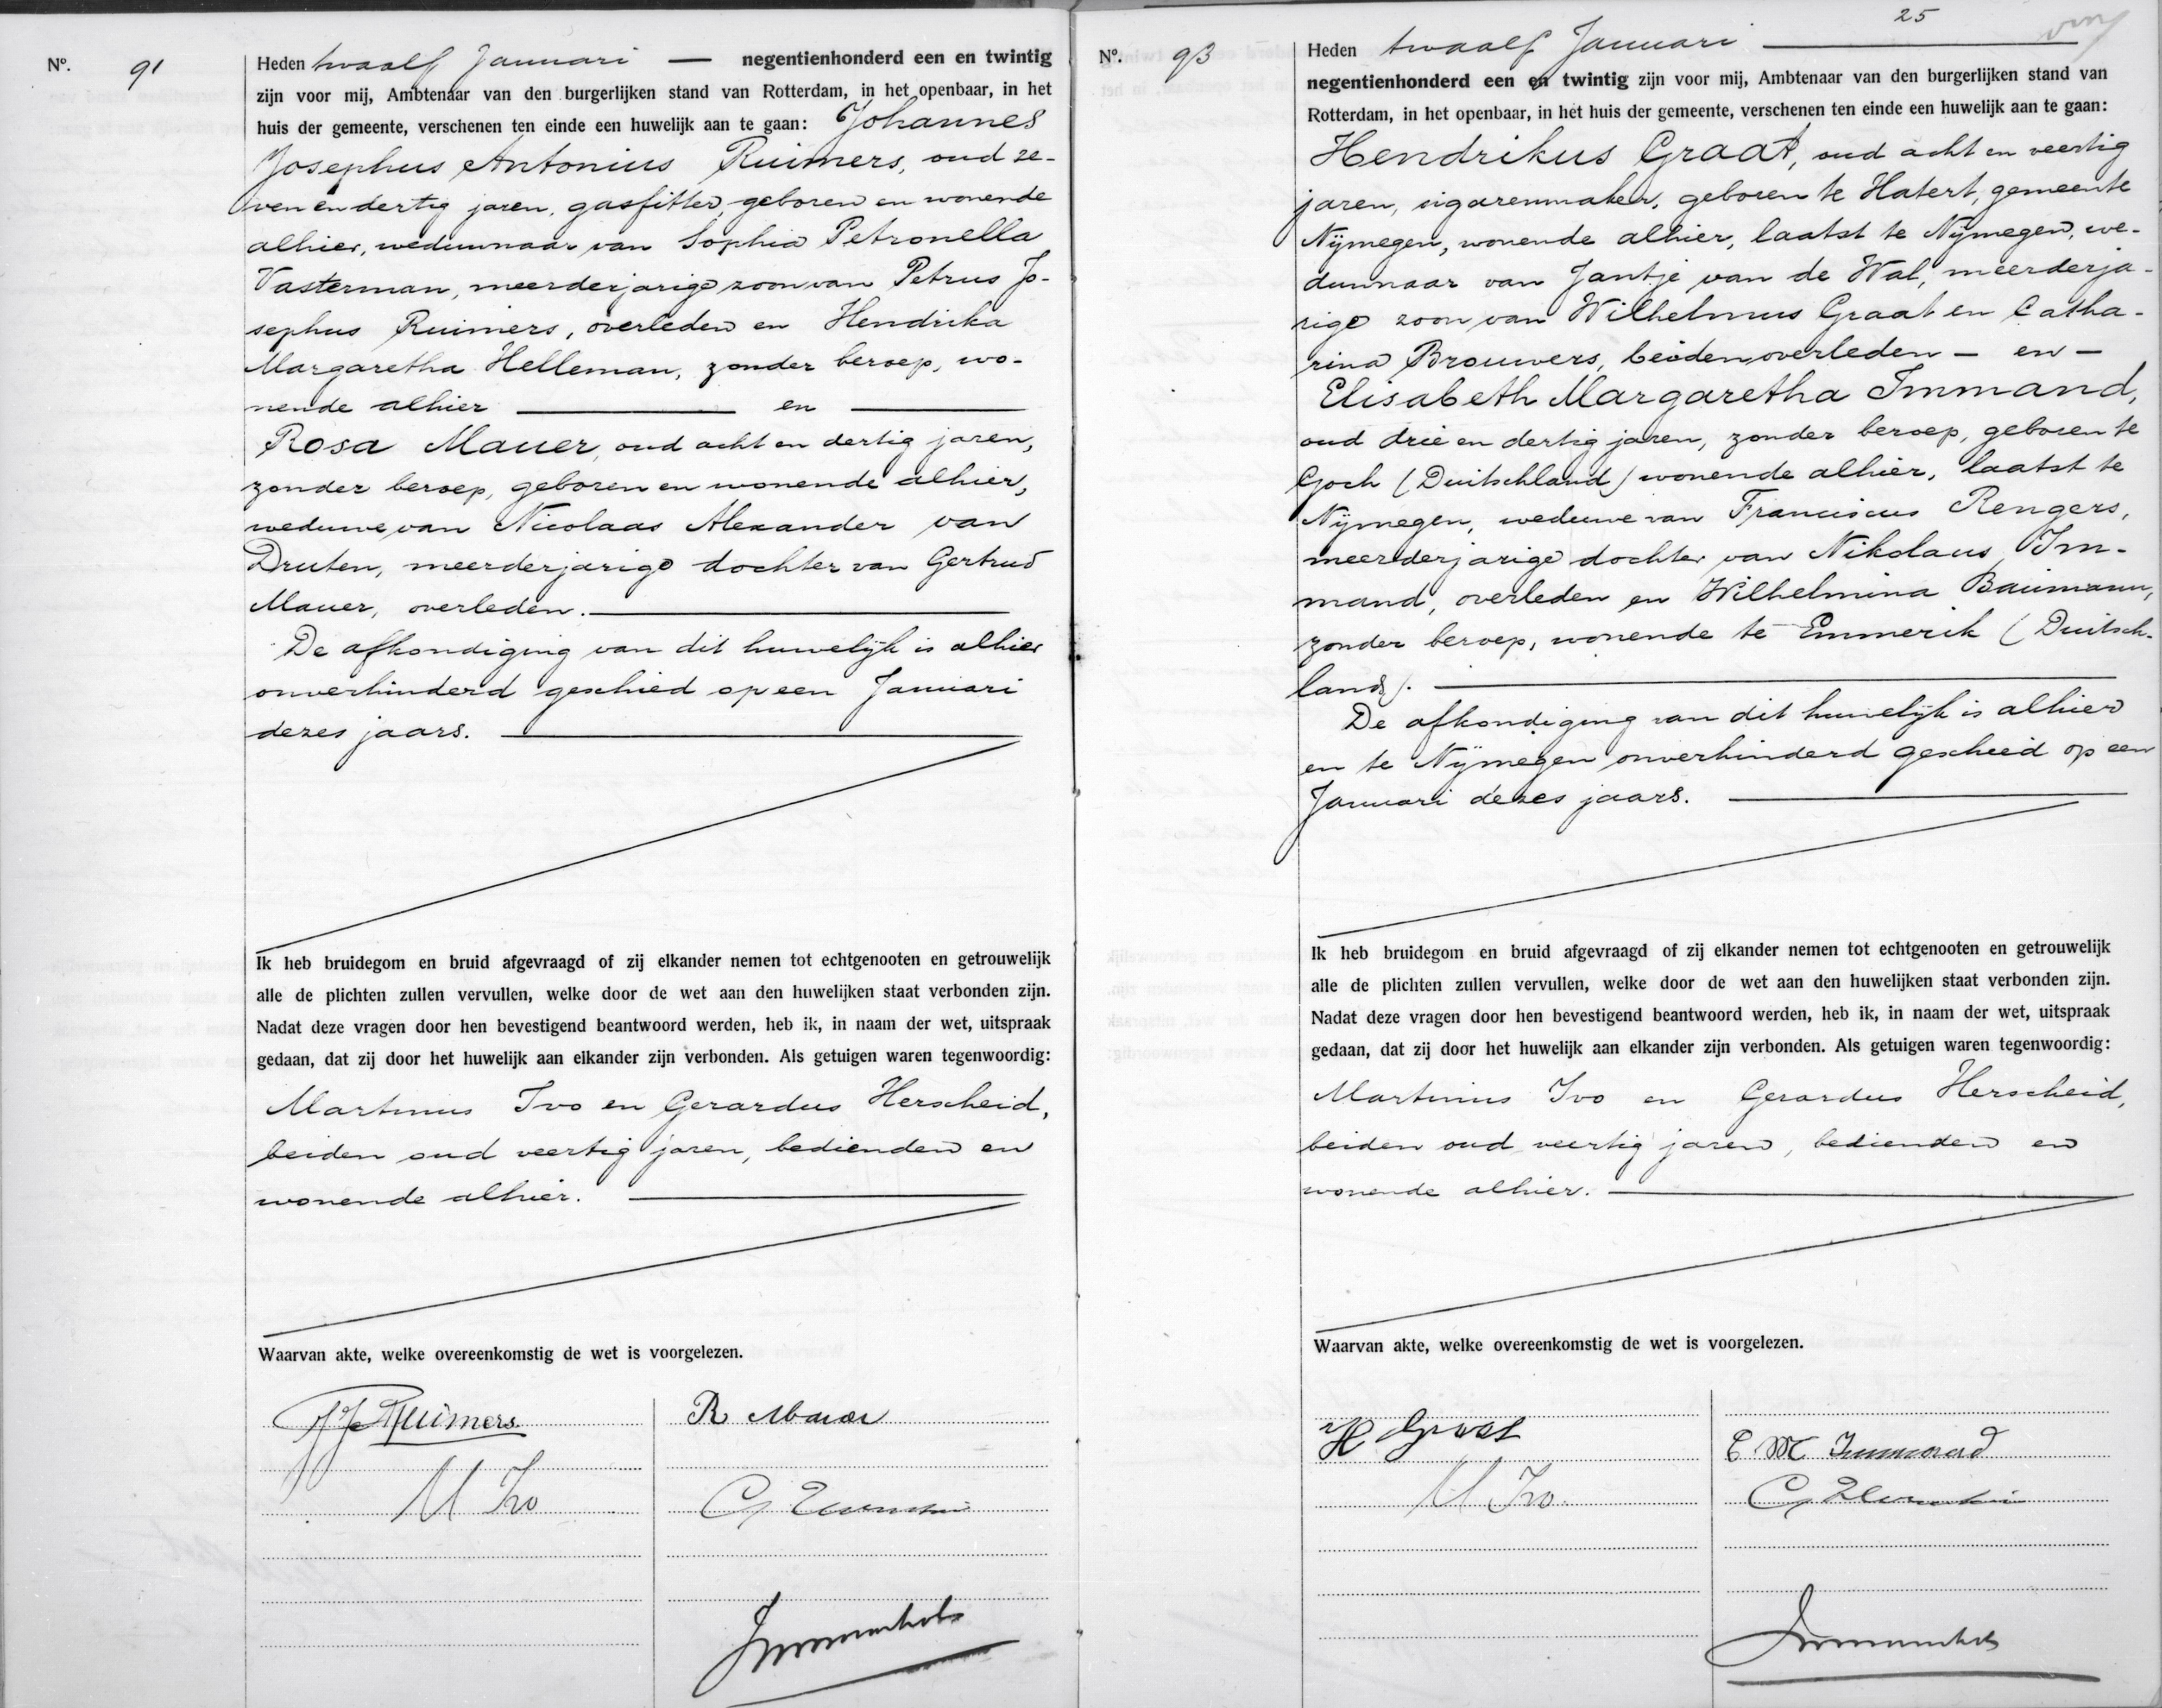 Nº. 91
Heden twaalf Januari — negentienhonderd een en twintig
zijn voor mij, Ambtenaar van den burgerlijken stand van Rotterdam, in het openbaar, in het
huis der gemeente, verschenen ten einde een huwelijk aan te gaan: Johannes
Josephus Antonius Ruimers, oud ze-
ven en dertig jaren, gasfitter, geboren en wonende
alhier, weduwnaar van Sophia Petronella
Vasterman, meerderjarige zoon van Petrus Jo-
sephus Ruimers, overleden en Hendrika
Margaretha Helleman, zonder beroep, wo-
nende alhier — en —
Rosa Mauer, oud acht en dertig jaren,
zonder beroep, geboren en wonende alhier,
weduwe van Nicolaas Alexander van
Druten, meerderjarige dochter van Gertrud
Mauer, overleden. —
De afkondiging van dit huwelijk is alhier
onverhinderd geschied op een Januari
dezes jaars. —
Ik heb bruidegom en bruid afgevraagd of zij elkander nemen tot echtgenooten en getrouwelijk
alle de plichten zullen vervullen, welke door de wet aan den huwelijken staat verbonden zijn.
Nadat deze vragen door hen bevestigend beantwoord werden, heb ik, in naam der wet, uitspraak
gedaan, dat zij door het huwelijk aan elkander zijn verbonden. Als getuigen waren tegenwoordig:
Martinus Ivo en Gerardus Herscheid,
beiden oud veertig jaren, bedienden en
wonende alhier. —
Waarvan akte, welke overeenkomstig de wet is voorgelezen.
J J A Ruimers
R Mauer
M Ivo
25
Nº. 93
Heden twaalf Januari —
negentienhonderd een en twintig zijn voor mij, Ambtenaar van den burgerlijken stand van
Rotterdam, in het openbaar, in het huis der gemeente, verschenen ten einde een huwelijk aan te gaan:
Hendrikus Graat, oud acht en veertig
jaren, sigarenmaker, geboren te Hatert, gemeente
Nijmegen, wonende alhier, laatst te Nijmegen, we-
duwnaar van Jantje van de Wal, meerderja-
rige zoon van Wilhelmus Graat en Catha-
rina Brouwers, beiden overleden — en —
Elisabeth Margaretha Immand,
oud drie en dertig jaren, zonder beroep, geboren te
Goch (Duitschland) wonende alhier, laatst te
Nijmegen, weduwe van Franciscus Rengers,
meerderjarige dochter van Nikolaus Im-
mand, overleden en Wilhelmina Baumann,
zonder beroep, wonende te Emmerik (Duitsch-
land). —
De afkondiging van dit huwelijk is alhier
en te Nijmegen onverhinderd gescheid op een
Januari dezes jaars. —
Ik heb bruidegom en bruid afgevraagd of zij elkander nemen tot echtgenooten en getrouwelijk
alle de plichten zullen vervullen, welke door de wet aan den huwelijken staat verbonden zijn.
Nadat deze vragen door hen bevestigend beantwoord werden, heb ik, in naam der wet, uitspraak
gedaan, dat zij door het huwelijk aan elkander zijn verbonden. Als getuigen waren tegenwoordig:
Martinus Ivo en Gerardus Herscheid,
beiden oud veertig jaren, bedienden en
wonende alhier. —
Waarvan akte, welke overeenkomstig de wet is voorgelezen.
H Graat
E M Immand
M Ivo